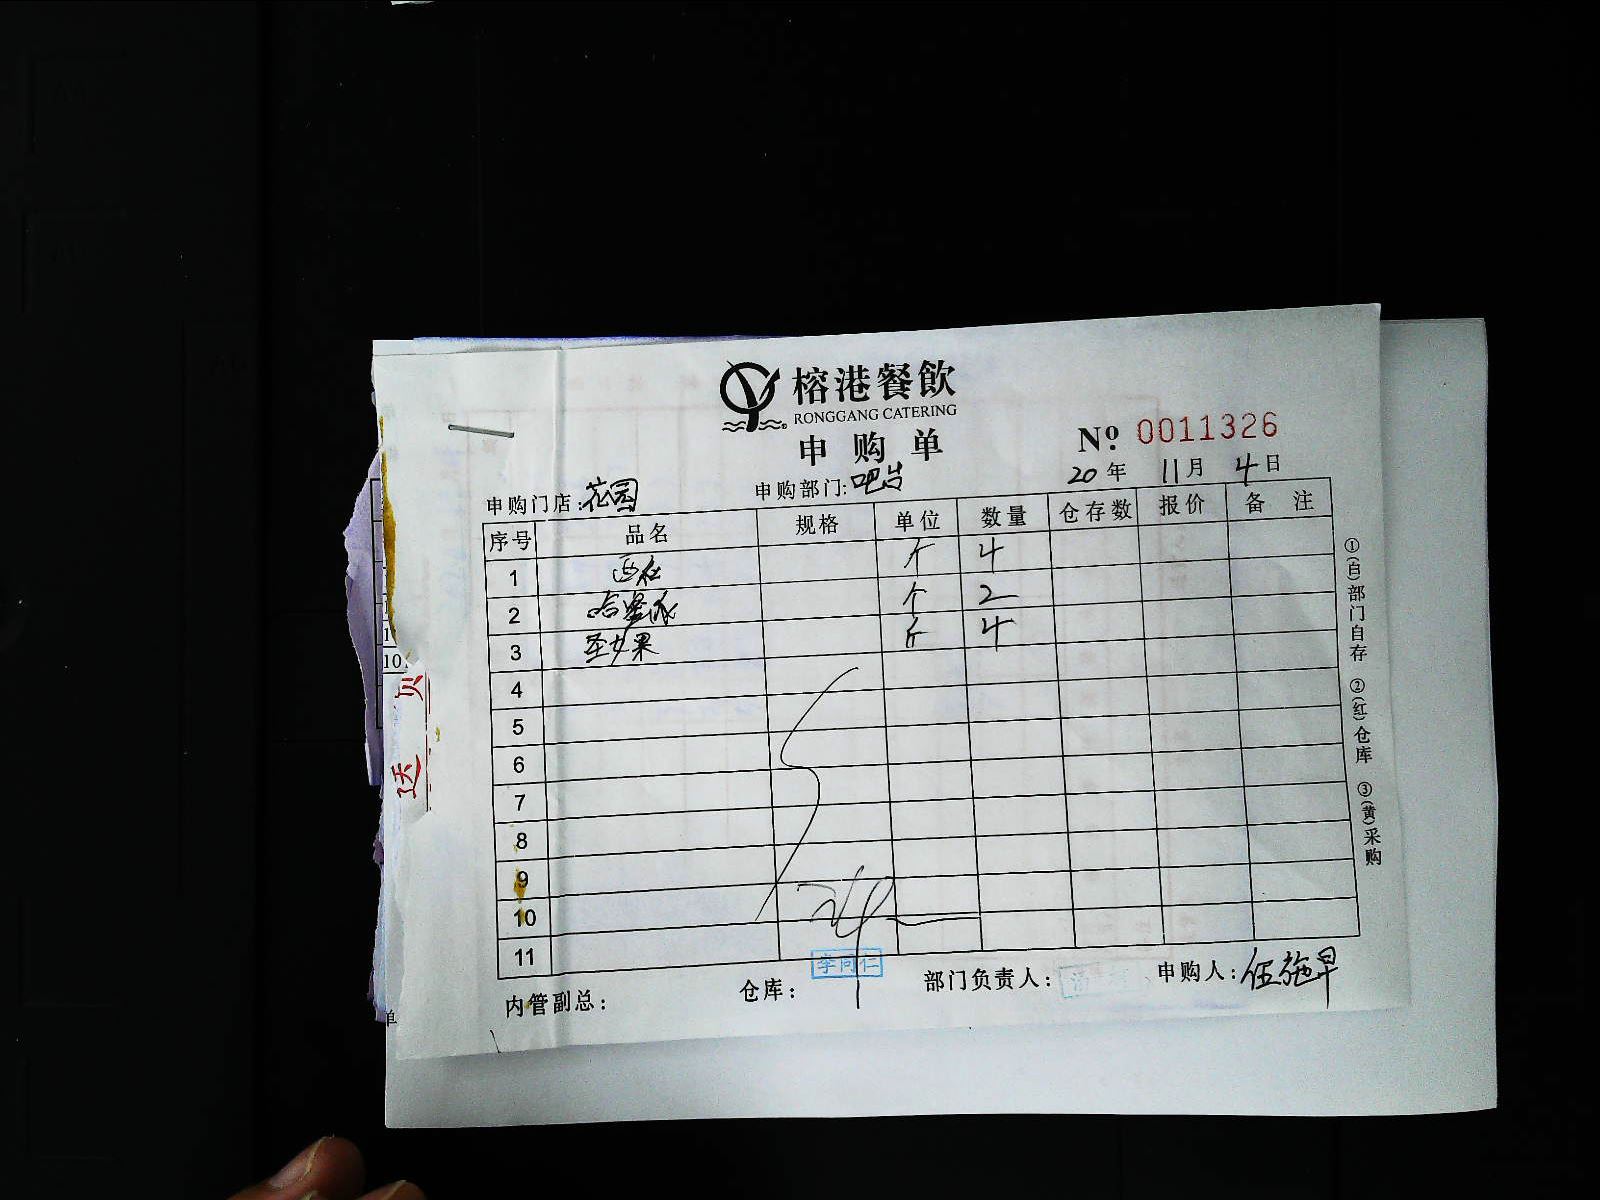 榕港餐飲
RONGGANG CATERING
申购单
№ 0011326
20年 11月 4日
申购门店:花园 申购部门:吧台
序号 品名 规格 单位 数量 仓存数 报价 备注
1 西瓜 个 4
2 哈密瓜 个 2
3 圣女果 斤 4
4
5
6
7
8
9
10
11
内管副总: 仓库: 李同仁 部门负责人: 申购人:
①(白)部门自存 ②(红)仓库 ③(黄)采购
10
单